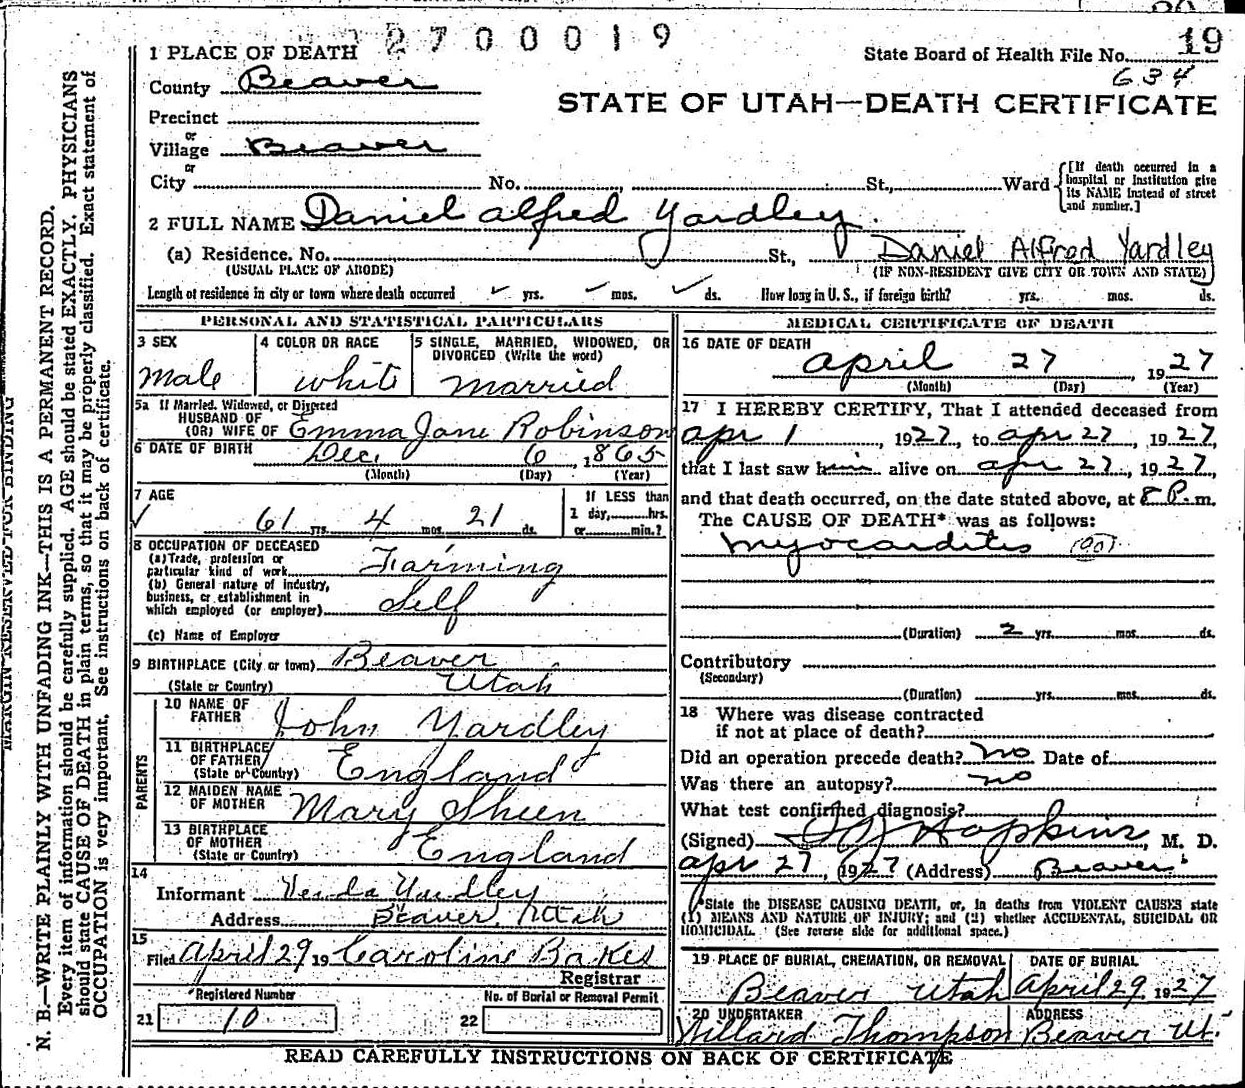 2700019
19
1 PLACE OF DEATH
State Board of Health File No.
634
County Beaver
STATE OF UTAH—DEATH CERTIFICATE
Precinct
or
Village Beaver
or
City No. St., Ward
[If death occurred in a hospital or institution give its NAME instead of street and number.]
2 FULL NAME Daniel Alfred Yardley
(a) Residence. No. St., Daniel Alfred Yardley
(USUAL PLACE OF ABODE) (IF NON-RESIDENT GIVE CITY OR TOWN AND STATE)
Length of residence in city or town where death occurred yrs. mos. ds. How long in U. S., if foreign birth? yrs. mos. ds.
PERSONAL AND STATISTICAL PARTICULARS
3 SEX
Male
4 COLOR OR RACE
white
5 SINGLE, MARRIED, WIDOWED, OR DIVORCED (Write the word)
married
5a If Married, Widowed, or Divorced
HUSBAND OF
(OR) WIFE OF Emma Jane Robinson
6 DATE OF BIRTH Dec. 6, 1865
(Month) (Day) (Year)
7 AGE
61 yrs. 4 mos. 21 ds.
If LESS than
1 day, hrs.
or min.?
8 OCCUPATION OF DECEASED
(a) Trade, profession or
particular kind of work Farming
(b) General nature of industry,
business, or establishment in
which employed (or employer) Self
(c) Name of Employer
9 BIRTHPLACE (City or town) Beaver
(State or Country) Utah
PARENTS
10 NAME OF
FATHER John Yardley
11 BIRTHPLACE
OF FATHER
(State or Country) England
12 MAIDEN NAME
OF MOTHER Mary Sheen
13 BIRTHPLACE
OF MOTHER
(State or Country) England
14
Informant Verda Yardley
Address Beaver, Utah
15
Filed April 29 19 Caroline Bakes
Registrar
Registered Number
21 10
No. of Burial or Removal Permit
22
MEDICAL CERTIFICATE OF DEATH
16 DATE OF DEATH
April 27, 1927
(Month) (Day) (Year)
17 I HEREBY CERTIFY, That I attended deceased from
apr 1, 1927, to apr 27, 1927,
that I last saw him alive on apr 27, 1927,
and that death occurred, on the date stated above, at 8 P. m.
The CAUSE OF DEATH* was as follows:
Myocarditis (90)
(Duration) 2 yrs. mos. ds.
Contributory
(Secondary)
(Duration) yrs. mos. ds.
18 Where was disease contracted
if not at place of death?
Did an operation precede death? no Date of
Was there an autopsy? no
What test confirmed diagnosis?
(Signed) Hopkins, M. D.
apr 27, 1927 (Address) Beaver
*State the DISEASE CAUSING DEATH, or, in deaths from VIOLENT CAUSES state
(1) MEANS AND NATURE OF INJURY; and (2) whether ACCIDENTAL, SUICIDAL OR
HOMICIDAL. (See reverse side for additional space.)
19 PLACE OF BURIAL, CREMATION, OR REMOVAL
Beaver Utah
DATE OF BURIAL
April 29, 1927
20 UNDERTAKER
Willard Thompson
ADDRESS
Beaver Ut.
READ CAREFULLY INSTRUCTIONS ON BACK OF CERTIFICATE
MARGIN RESERVED FOR BINDING
N. B.—WRITE PLAINLY WITH UNFADING INK—THIS IS A PERMANENT RECORD.
Every item of information should be carefully supplied. AGE should be stated EXACTLY. PHYSICIANS
should state CAUSE OF DEATH in plain terms, so that it may be properly classified. Exact statement of
OCCUPATION is very important. See instructions on back of certificate.